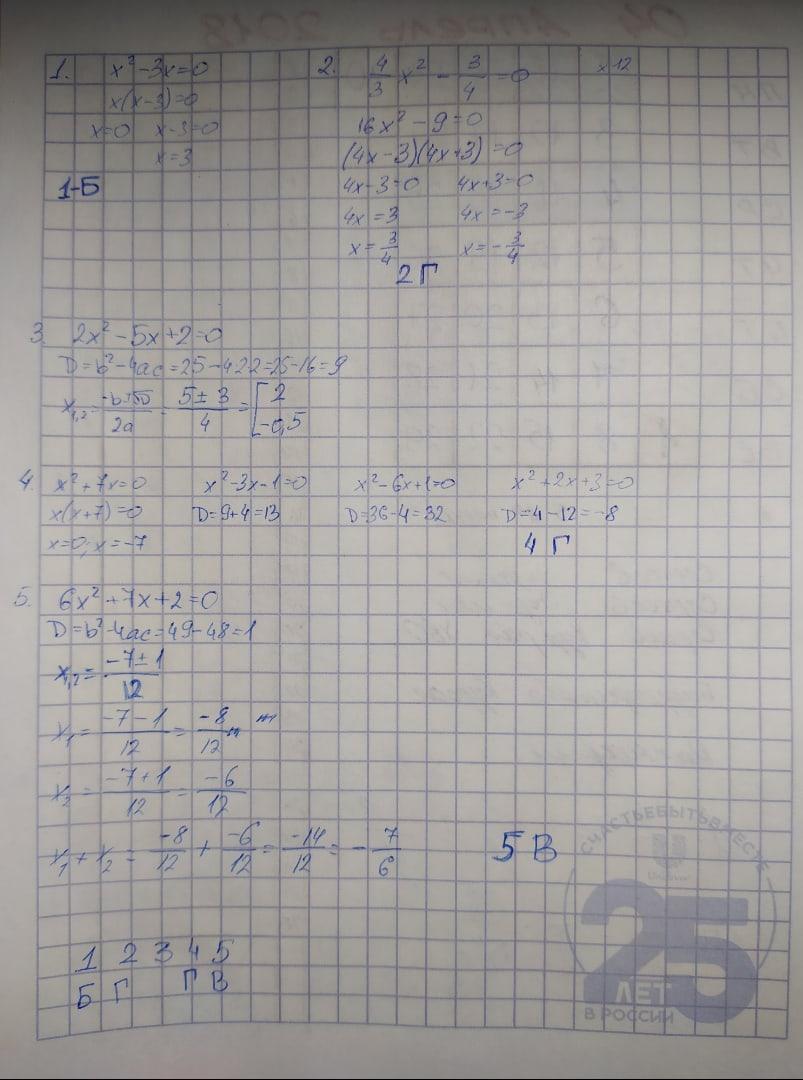 1. x² - 3x = 0
x(x-3) = 0
x=0 x-3=0
x=3
1-Б
2. 4/3 x² - 3/4 = 0 ×12
16x² - 9 = 0
(4x-3)(4x+3) = 0
4x-3=0 4x+3=0
4x=3 4x=-3
x=3/4 x=-3/4
2 Г
3. 2x² - 5x + 2 = 0
D=b²-4ac=25-4·2·2=25-16=9
x₁,₂ = (-b±√D)/2a = (5±3)/4 = [2
-0,5
4. x²+7x=0 x²-3x-1=0 x²-6x+1=0 x²+2x+3=0
x(x+7)=0 D=9+4=13 D=36-4=32 D=4-12=-8
x=0; x=-7 4 Г
5. 6x²+7x+2=0
D=b²-4ac=49-48=1
x₁,₂ = (-7±1)/12
x₁ = (-7-1)/12 = -8/12
x₂ = (-7+1)/12 = -6/12
x₁ + x₂ = -8/12 + -6/12 = -14/12 = -7/6 5 В
1 2 3 4 5
Б Г Г В
СЧАСТЬЕБЫТЬВМЕСТЕ
25
ЛЕТ
В РОССИИ